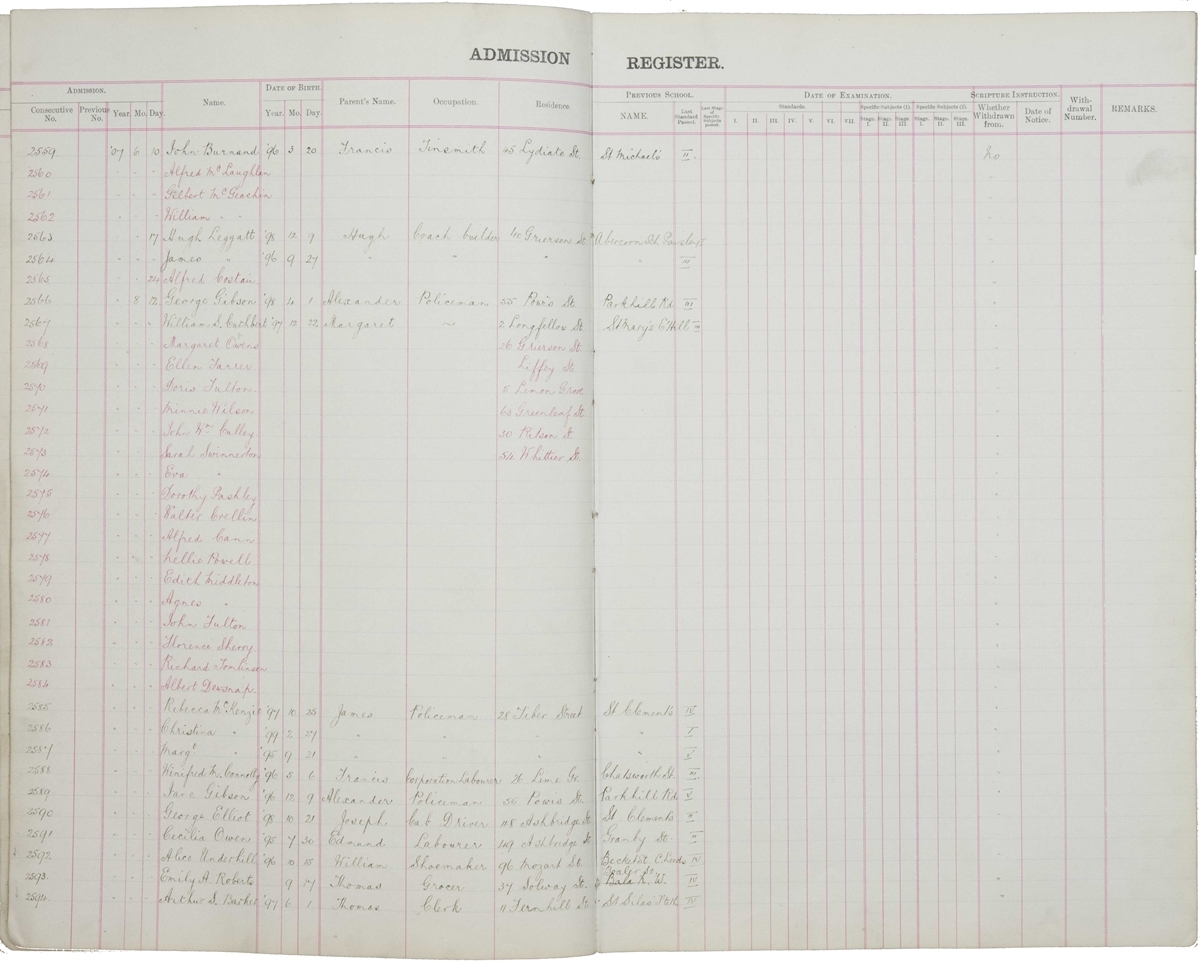 ADMISSION REGISTER.
ADMISSION. DATE OF BIRTH. PREVIOUS SCHOOL. DATE OF EXAMINATION. SCRIPTURE INSTRUCTION.
Consecutive No. Previous No. Year. Mo. Day. Name. Year. Mo. Day. Parent's Name. Occupation. Residence. NAME. Last Standard Passed. Last Stage of Specific Subjects passed. Standards. Specific Subjects (1). Specific Subjects (2). Whether Withdrawn from. Date of Notice. With-drawal Number. REMARKS.
I. II. III. IV. V. VI. VII. Stage. I. Stage. II. Stage. III. Stage. I. Stage. II. Stage. III.
2559 '07 6 10 John Burnand '96 3 20 Francis Tinsmith 25 Lydiate St. St Michael's II. no
2560 - - - Alfred McLaughlan
2561 - - - Gilbert McGeachin
2562 - - - William " "
2563 - - 17 Hugh Leggatt '98 12 9 Hugh Coach builder 40 Grierson St. Abercorn Sch Paisley
2564 - - - James " '96 9 27 " " " " III
2565 - - 24 Alfred Costain
2566 - 8 12 George Gibson '98 4 1 Alexander Policeman 55 Powis St. Parkhill Rd III
2567 - - - William S. Cuthbert '97 12 22 Margaret 2 Longfellow St St Mary's E Hill III
2568 - - - Margaret Owens 26 Grierson St.
2569 - - - Ellen Farrer Liffey St
2570 - - - Doris Fulton 5 Limon Grove
2571 - - - Minnie Wilson 63 Greenleaf St
2572 - - - John Wm Culley 30 Ritson St
2573 - - - Sarah Swinnerton 54 Whittier St
2574 - - - Eva "
2575 - - - Dorothy Pashley
2576 - - - Walter Crellin
2577 - - - Alfred Cann
2578 - - - Nellie Powell
2579 - - - Edith Middleton
2580 - - - Agnes "
2581 - - - John Fulton
2582 - - - Florence Sherry
2583 - - - Richard Tomlinson
2584 - - - Albert Dewsnap
2585 - - - Rebecca McKenzie '97 10 25 James Policeman 28 Tiber Street St Clements IV
2586 - - - Christina " '99 2 27 " " " " I
2587 - - - Margt " '95 9 21 " " " " V
2588 - - - Winifred M. Connolly '96 5 6 Francis Corporation Labourer 26 Lime Gr. Chatsworth St. III
2589 - - - Jane Gibson '96 12 9 Alexander Policeman 55 Powis St. Parkhill Rd V
2590 - - - George Elliot '98 10 21 Joseph Cab Driver 118 Ashbridge St. St. Clements II
2591 - - - Cecilia Owen '95 7 30 Edmund Labourer 149 Ashbridge St Granby St. III
2592 - - - Alice Underhill '96 10 15 William Shoemaker 96 Mozart St. Becket St. C. Leeds IV
2593 - - - Emily A. Roberts 9 17 Thomas Grocer 37 Solway St. Bala N. W. IV
2594 - - - Arthur S. Barker '97 6 1 Thomas Clerk 11 Fernhill St. St Silas IV